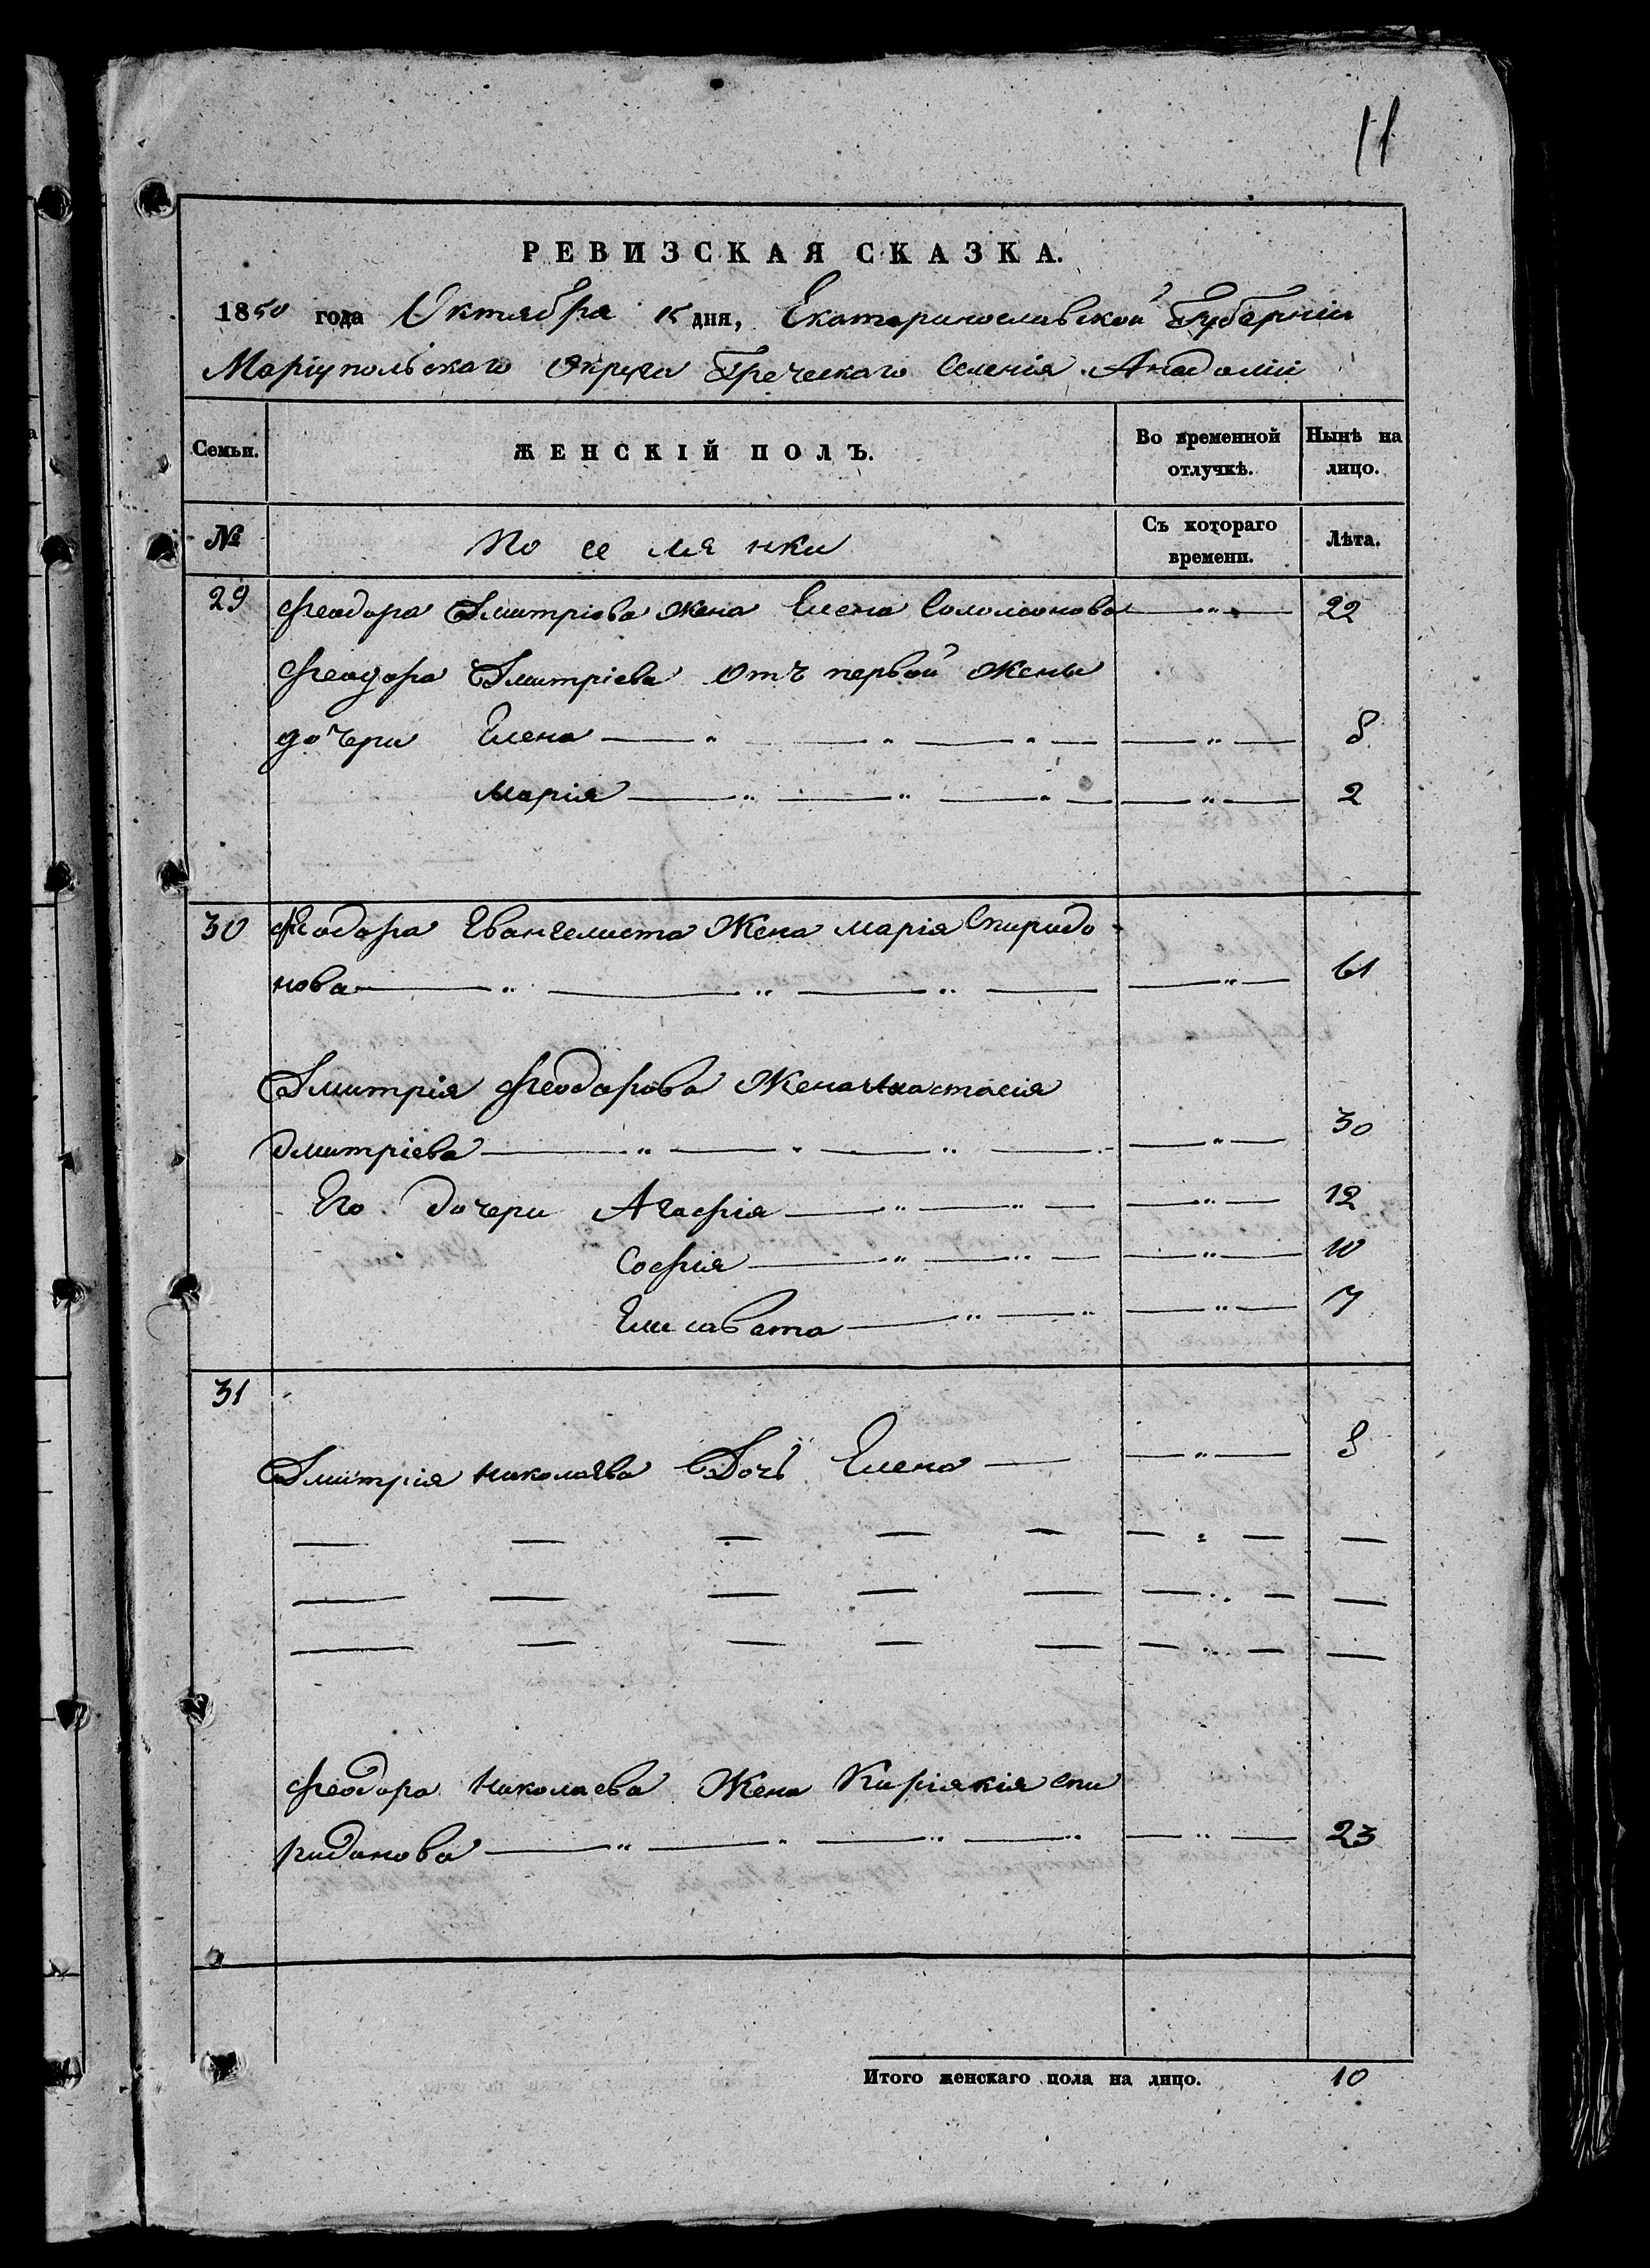 11
РЕВИЗСКАЯ СКАЗКА.
1850 года Октября 15 дня, Екатеринославской Губерніи
Маріупольскаго Округа Греческаго Селенія Анадоліи
Семьи. ЖЕНСКІЙ ПОЛЪ. Во временной отлучкѣ. Нынѣ на лицо.
№ Поселянки Съ котораго времени. Лѣта.
29 Феодора Дмитріова Жена Елена Соломонова — " — 22
Феодора Дмитріева Отъ первой Жены
дочери Елена — " — " — " — — " — 8
Марія — " — " — " — — " — 2
30 Феодора Евангелиста Жена Марія Спиридо
нова — " — " — " — — " — 61
Дмитрія Феодорова Жена Анастасія
Дмитріева — " — " — " — — " — 30
Его дочери Агафія — " — " — — " — 12
Софія — " — " — — " — 10
Елисавета — " — " — " — 7
31
Дмитрія Николаева Дочь Елена — — " — 8
— — — — — — " — —
— — — — — — " — —
— — — — — — " — —
Феодора Николаева Жена Киріякія Спи
ридонова — " — " — " — " — " — 23
Итого женскаго пола на лицо. 10